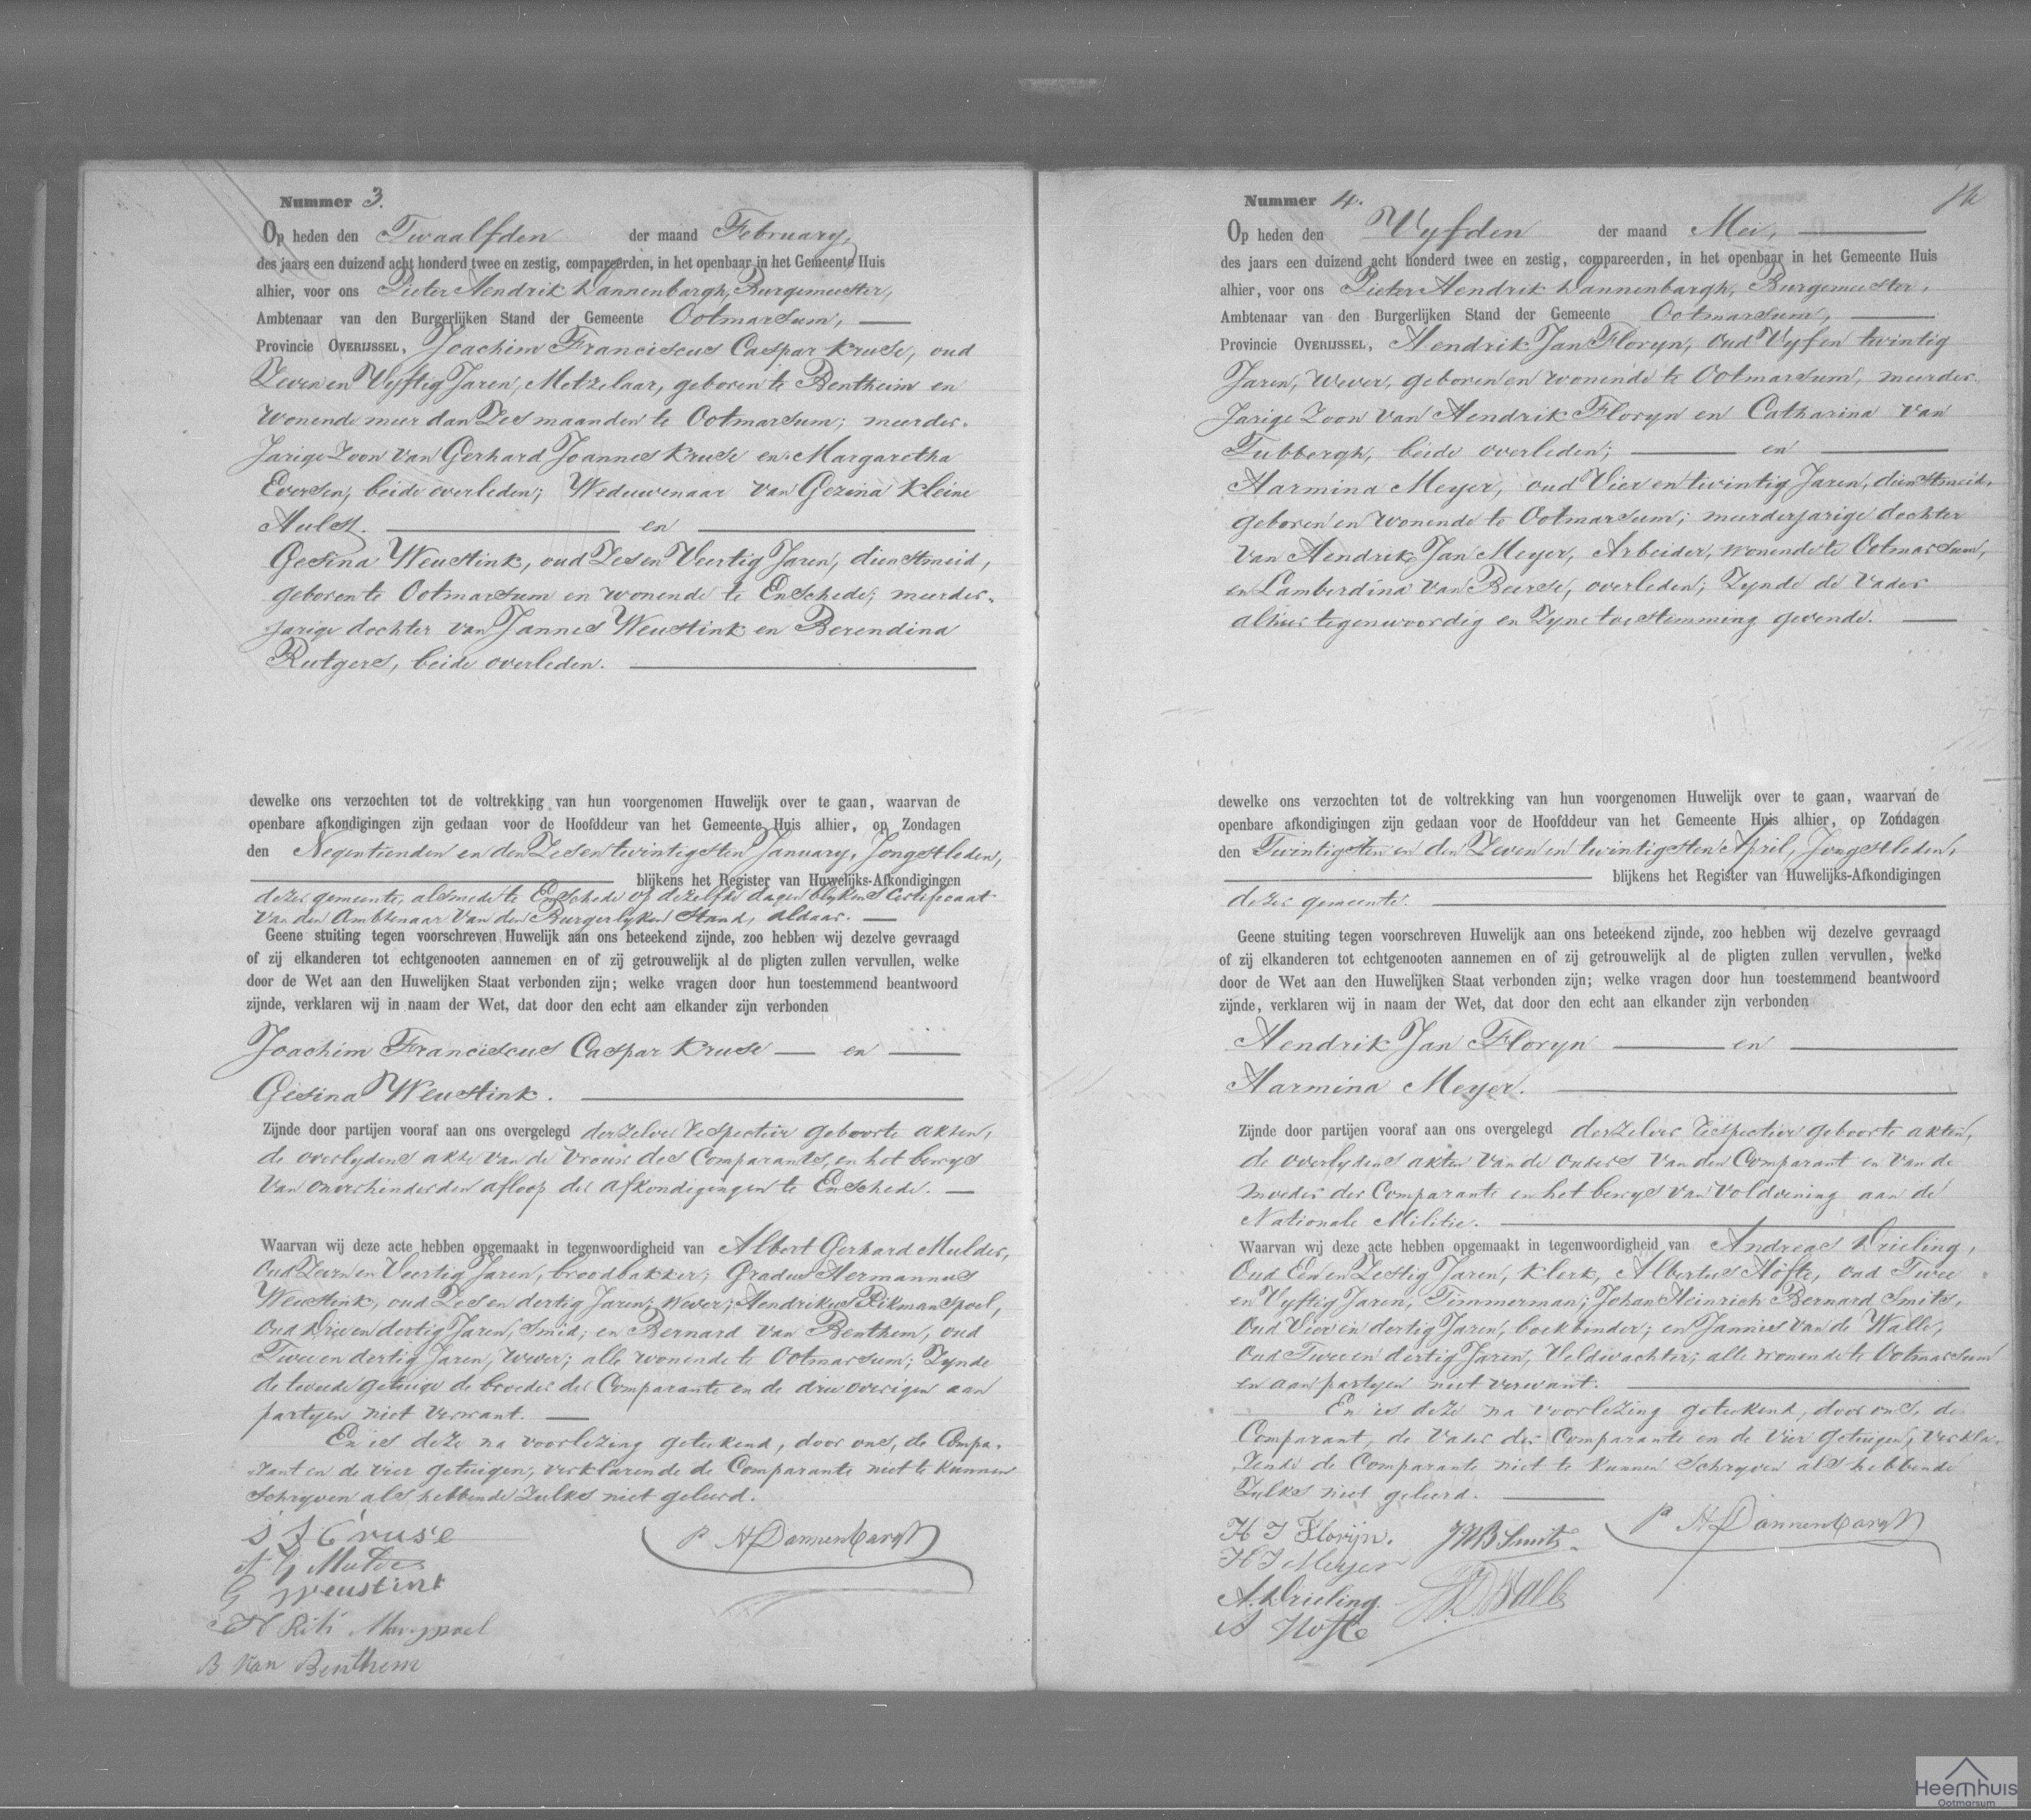 Nummer 3.
Op heden den Twaalfden der maand February,
des jaars een duizend acht honderd twee en zestig, compareerden, in het openbaar in het Gemeente Huis
alhier, voor ons Pieter Hendrik Dannenbargh, Burgemeester,
Ambtenaar van den Burgerlijken Stand der Gemeente Ootmarsum,
Provincie OVERIJSSEL, Joachim Franciscus Caspar Kruse, oud
Zeven en Vyftig Jaren, Metzelaar, geboren te Bentheim en
wonende meer dan Zes maanden te Ootmarsum; meerder-
jarige Zoon van Gerhard Joannes Kruse en Margaretha
Eversen, beide overleden; Weduwenaar van Gezina Kleine
Hulst. en
Gesina Weustink, oud Zes en Veertig Jaren, dienstmeid,
geboren te Ootmarsum en wonende te Enschede; meerder-
jarige dochter van Jannes Weustink en Berendina
Rutgers, beide overleden.
dewelke ons verzochten tot de voltrekking van hun voorgenomen Huwelijk over te gaan, waarvan de
openbare afkondigingen zijn gedaan voor de Hoofddeur van het Gemeente Huis alhier, op Zondagen
den Negentienden en den Zesentwintigsten January, Jongstleden,
blijkens het Register van Huwelijks-Afkondigingen
dezer gemeente, alsmede te Enschede op dezelfde dagen blykens Certificaat
van den Ambtenaar van den Burgerlyken Stand, aldaar.
Geene stuiting tegen voorschreven Huwelijk aan ons beteekend zijnde, zoo hebben wij dezelve gevraagd
of zij elkanderen tot echtgenooten aannemen en of zij getrouwelijk al de pligten zullen vervullen, welke
door de Wet aan den Huwelijken Staat verbonden zijn; welke vragen door hun toestemmend beantwoord
zijnde, verklaren wij in naam der Wet, dat door den echt aan elkander zijn verbonden
Joachim Franciscus Caspar Kruse en
Gesina Weustink.
Zijnde door partijen vooraf aan ons overgelegd derzelver respective geboorte akten,
de overlydens akte van de vrouw des Comparants, en het bewys
van onverhinderden afloop der afkondigingen te Enschede.
Waarvan wij deze acte hebben opgemaakt in tegenwoordigheid van Albert Gerhard Mulder,
oud Zeven en Veertig Jaren, broodbakker; Gradus Hermannus
Weustink, oud Zes en dertig Jaren; Wever; Hendrikus Rikmanspoel,
oud Drie en dertig Jaren, Smid; en Bernard van Benthem, oud
Twee en dertig Jaren, Wever; alle wonende te Ootmarsum; Zynde
de tweede getuige de broeder der Comparante en de drie overigen aan
partyen niet verwant.
En is deze na voorlezing geteekend, door ons, de Compa-
rant en de vier getuigen; verklarende de Comparante niet te kunnen
schryven als hebbende zulks niet geleerd.
J F Cruse
A G Mulder
G Weustink
H Rikmanspoel
B van Benthem
P H Dannenbargh
Nummer 4.
Op heden den Vyfden der maand Mei,
des jaars een duizend acht honderd twee en zestig, compareerden, in het openbaar in het Gemeente Huis
alhier, voor ons Pieter Hendrik Dannenbargh, Burgemeester,
Ambtenaar van den Burgerlijken Stand der Gemeente Ootmarsum,
Provincie OVERIJSSEL, Hendrik Jan Floryn, oud Vyf en twintig
Jaren, Wever, geboren en wonende te Ootmarsum, meerder-
jarige Zoon van Hendrik Floryn en Catharina van
Tubbergh, beide overleden; en
Harmina Meyer, oud Vier en twintig Jaren, dienstmeid,
geboren en wonende te Ootmarsum; meerderjarige dochter
van Hendrik Jan Meyer, Arbeider, wonende te Ootmarsum,
en Lamberdina van Beerse, overleden; Zynde de vader
alhier tegenwoordig en Zyne toestemming gevende.
dewelke ons verzochten tot de voltrekking van hun voorgenomen Huwelijk over te gaan, waarvan de
openbare afkondigingen zijn gedaan voor de Hoofddeur van het Gemeente Huis alhier, op Zondagen
den Twintigsten en den Zeven en twintigsten April, Jongstleden,
blijkens het Register van Huwelijks-Afkondigingen
dezer gemeente.
Geene stuiting tegen voorschreven Huwelijk aan ons beteekend zijnde, zoo hebben wij dezelve gevraagd
of zij elkanderen tot echtgenooten aannemen en of zij getrouwelijk al de pligten zullen vervullen, welke
door de Wet aan den Huwelijken Staat verbonden zijn; welke vragen door hun toestemmend beantwoord
zijnde, verklaren wij in naam der Wet, dat door den echt aan elkander zijn verbonden
Hendrik Jan Floryn en
Harmina Meyer.
Zijnde door partijen vooraf aan ons overgelegd derzelver respective geboorte akten,
de overlydens akten van de ouders van den Comparant en van de
moeder der Comparante en het bewys van voldoening aan de
Nationale Militie.
Waarvan wij deze acte hebben opgemaakt in tegenwoordigheid van Andreas Drieling,
oud Een en Zestig Jaren, Klerk, Albertus Höfte, oud Twee
en Vyftig Jaren, Timmerman; Johan Heinrich Bernard Smits,
oud Vier en dertig Jaren, boekbinder; en Jannes van de Walle,
oud Twee en dertig Jaren, Veldwachter; alle wonende te Ootmarsum
en aan partyen niet verwant.
En is deze na voorlezing geteekend, door ons, de
Comparant, de Vader der Comparante en de vier getuigen; verkla-
rende de Comparante niet te kunnen schryven als hebbende
zulks niet geleerd.
H J Florijn.
H J Meyer
A. Drieling.
A Hofte
JHB Smits
P H Dannenbargh
Heemhuis
Ootmarsum